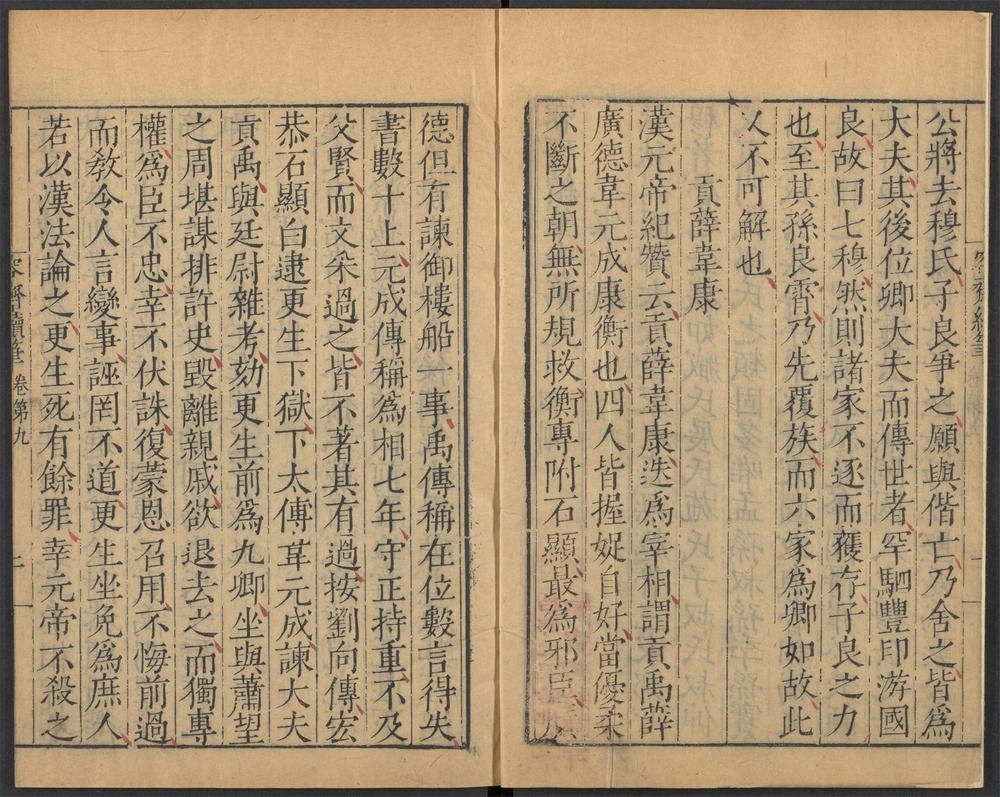 公將去穆氏子良爭之願與偕亡乃舍之皆爲
大夫其後位卿大夫而傳世者罕駟豐印游國
良故曰七穆然則諸家不逐而獲存子良之力
也至其孫良霄乃先覆族而六家爲卿如故此
又不可解也
貢薛韋康
漢元帝紀贊云貢薛韋康迭爲宰相謂貢禹薛
廣德韋元成康衡也四人皆握娖自好當優柔
不斷之朝無所規救衡專附石顯最爲邪臣
德但有諫御樓船一事禹傳稱在位數言得失
書數十上元成傳稱爲相七年守正持重不及
父賢而文采過之皆不著其有過按劉向傳宏
恭石顯白逮更生下獄下太傅韋元成諫大夫
貢禹與廷尉雜考劾更生前爲九卿坐與蕭望
之周堪謀排許史毀離親戚欲退去之而獨專
權爲臣不忠幸不伏誅復蒙恩召用不悔前過
而教令人言變事誣罔不道更生坐免爲庶人
若以漢法論之更生死有餘罪幸元帝不殺之
容齋續筆 卷第九